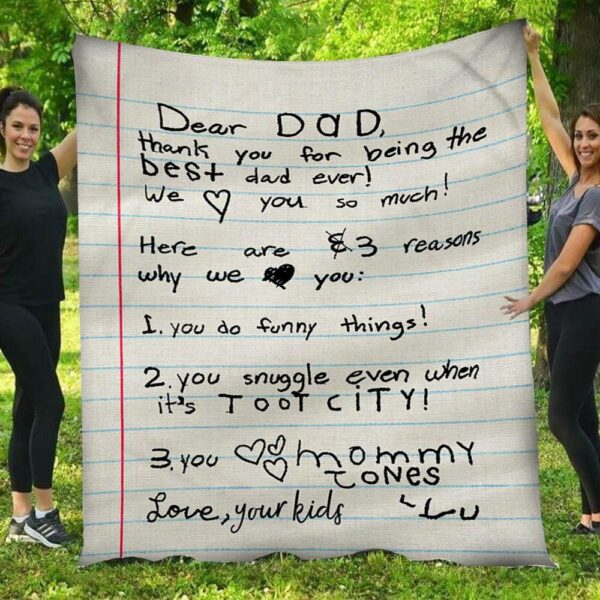 Dear DaD,
thank you for being the
best dad ever!
We ♡ you so much!
Here are 3 reasons
why we ♥ you:
1. you do funny things!
2. you snuggle even when
it's TOOT CiTY!
3. you ♡♡♡ mommy
Love, your kids